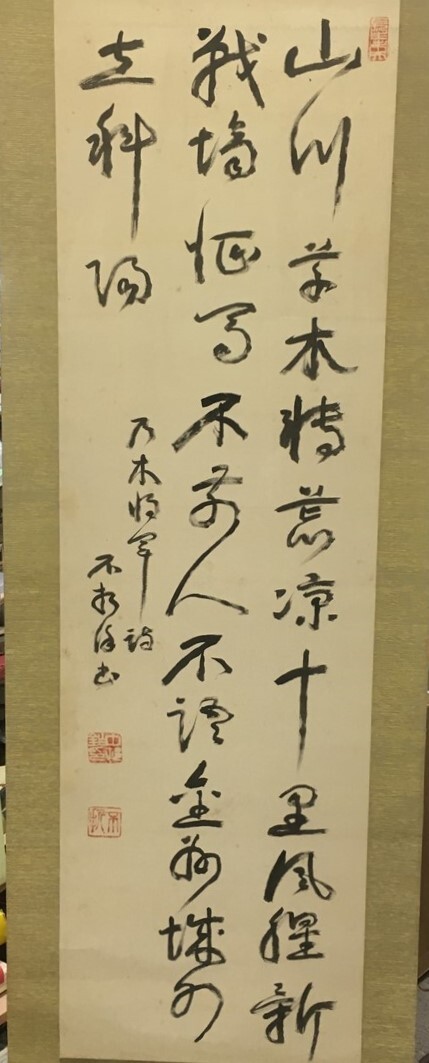 山川草木轉荒涼十里風腥新
戰場征馬不前人不語金州城外
立斜陽
乃木将軍詩
不
書